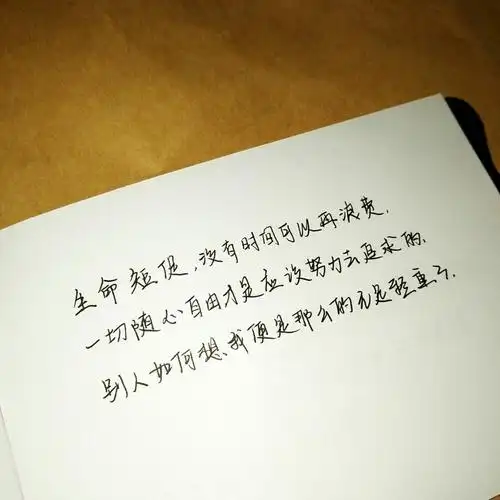 生命短促，没有时间可以再浪费，
一切随心自由才是应该努力去追求的，
别人如何想，我便是那么的无足轻重了．